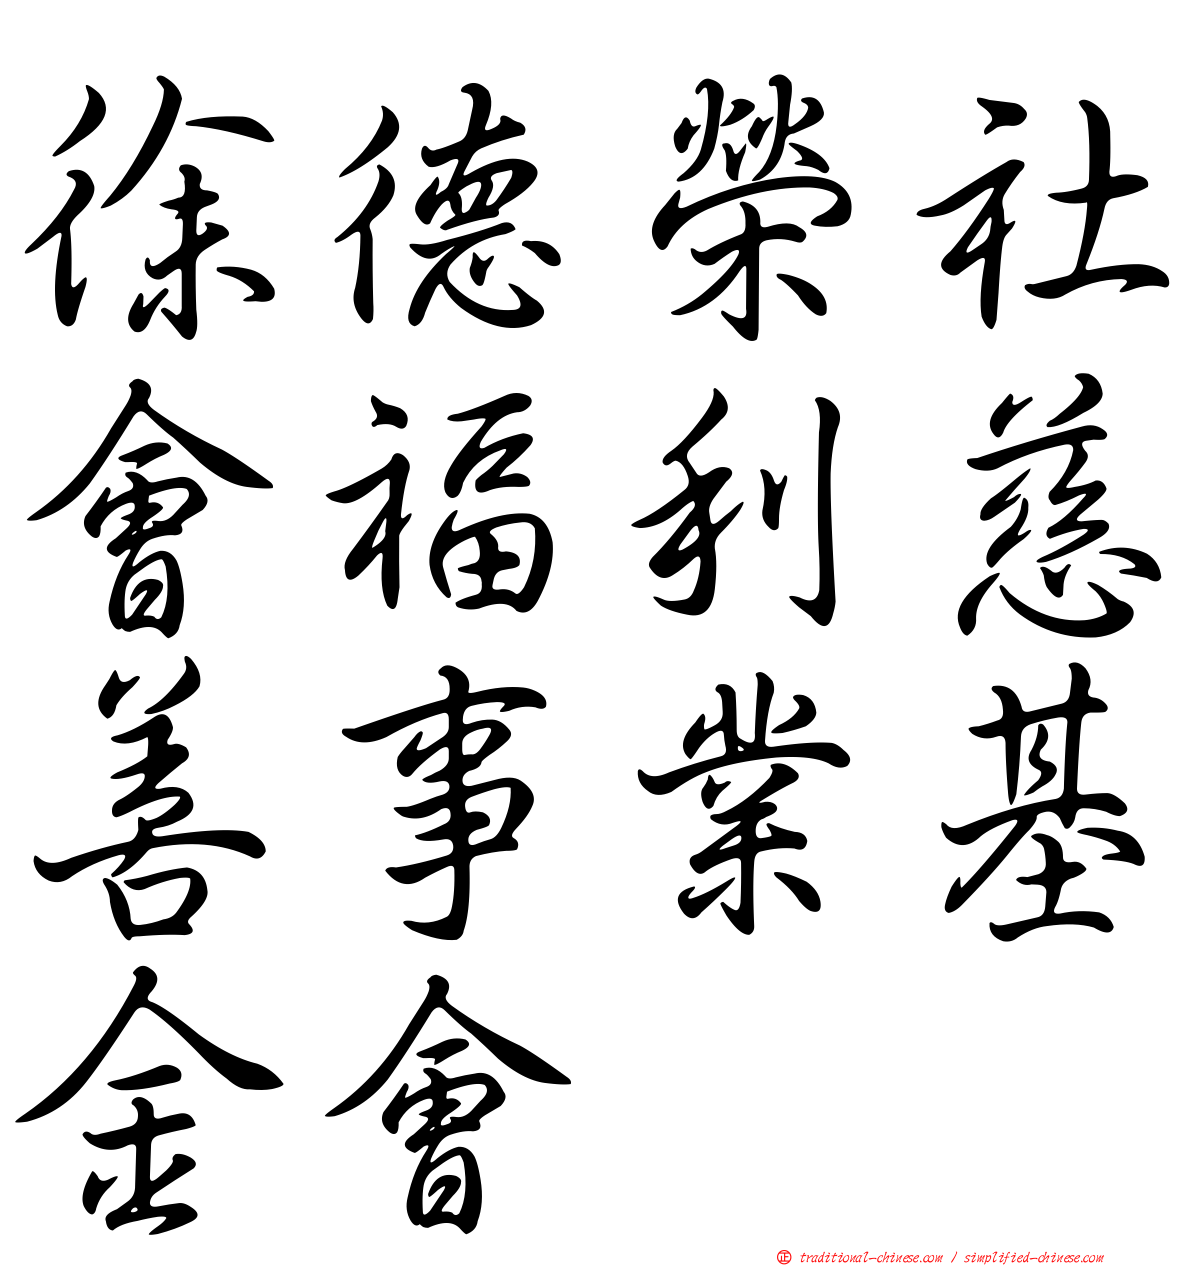 徐德榮社
會福利慈
善事業基
金會
㊣ traditional-chinese.com / simplified-chinese.com